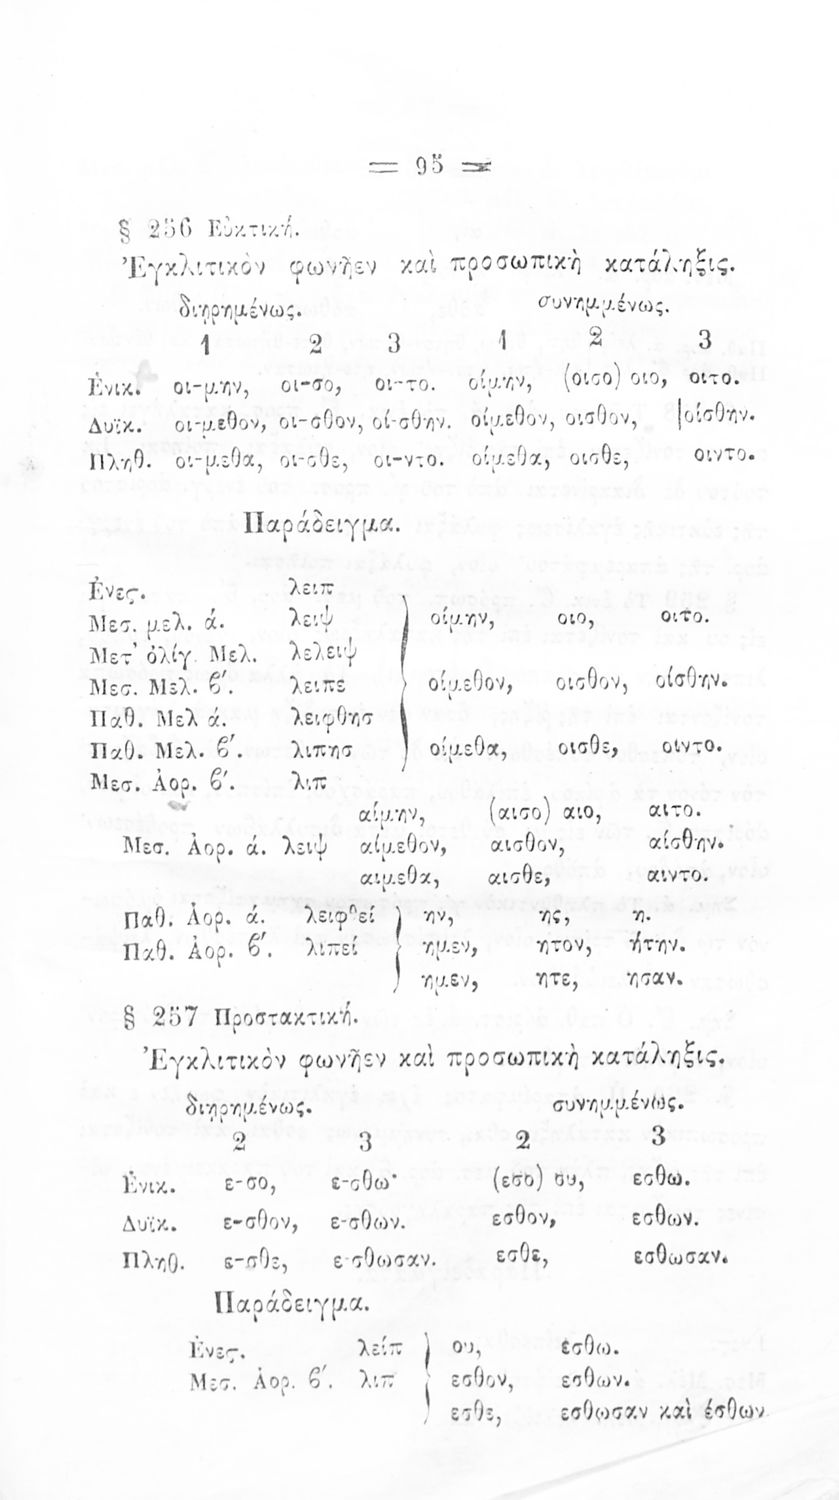 = 95 =
§ 256 Εὐκτική.
Ἐγκλιτικὸν φωνῆεν καὶ προσωπικὴ κατάληξις.
διῃρημένως. συνημμένως.
1 2 3 1 2 3
Ἑνικ. οι-μην, οι-σο, οι-το. οίμην, (οισο) οιο, οιτο.
Δυϊκ. οι-μεθον, οι-σθον, οί-σθην. οίμεθον, οισθον, οίσθην.
Πληθ. οι-μεθα, οι-σθε, οι-ντο. οίμεθα, οισθε, οιντο.
Παράδειγμα.
Ἐνες. λειπ
Μεσ. μελ. ά. λειψ οίμην, οιο, οιτο.
Μετ' ὀλίγ. Μελ. λελειψ
Μεσ. Μελ. β'. λειπε οίμεθον, οισθον, οίσθην.
Παθ. Μελ ά. λειφθησ
Παθ. Μελ. β'. λιπησ οίμεθα, οισθε, οιντο.
Μεσ. Ἀορ. β'. λιπ
αίμην, (αισο) αιο, αιτο.
Μεσ. Ἀορ. ά. λειψ αίμεθον, αισθον, αίσθην.
αιμεθα, αισθε, αιντο.
Παθ. Ἀορ. ά. λειφθεί ην, ης, η.
Παθ. Ἀορ. β'. λιπεί ημεν, ητον, ήτην.
ημεν, ητε, ησαν.
§ 257 Προστακτική.
Ἐγκλιτικὸν φωνῆεν καὶ προσωπικὴ κατάληξις.
διῃρημένως. συνημμένως.
2 3 2 3
Ἑνικ. ε-σο, ε-σθω· (εσο) ου, εσθω.
Δυϊκ. ε-σθον, ε-σθων. εσθον, εσθων.
Πληθ. ε-σθε, ε-σθωσαν. εσθε, εσθωσαν.
Παράδειγμα.
Ἐνες. λείπ ου, έσθω.
Μεσ. Ἀορ. β'. λιπ εσθον, εσθων.
εσθε, εσθωσαν καὶ έσθων